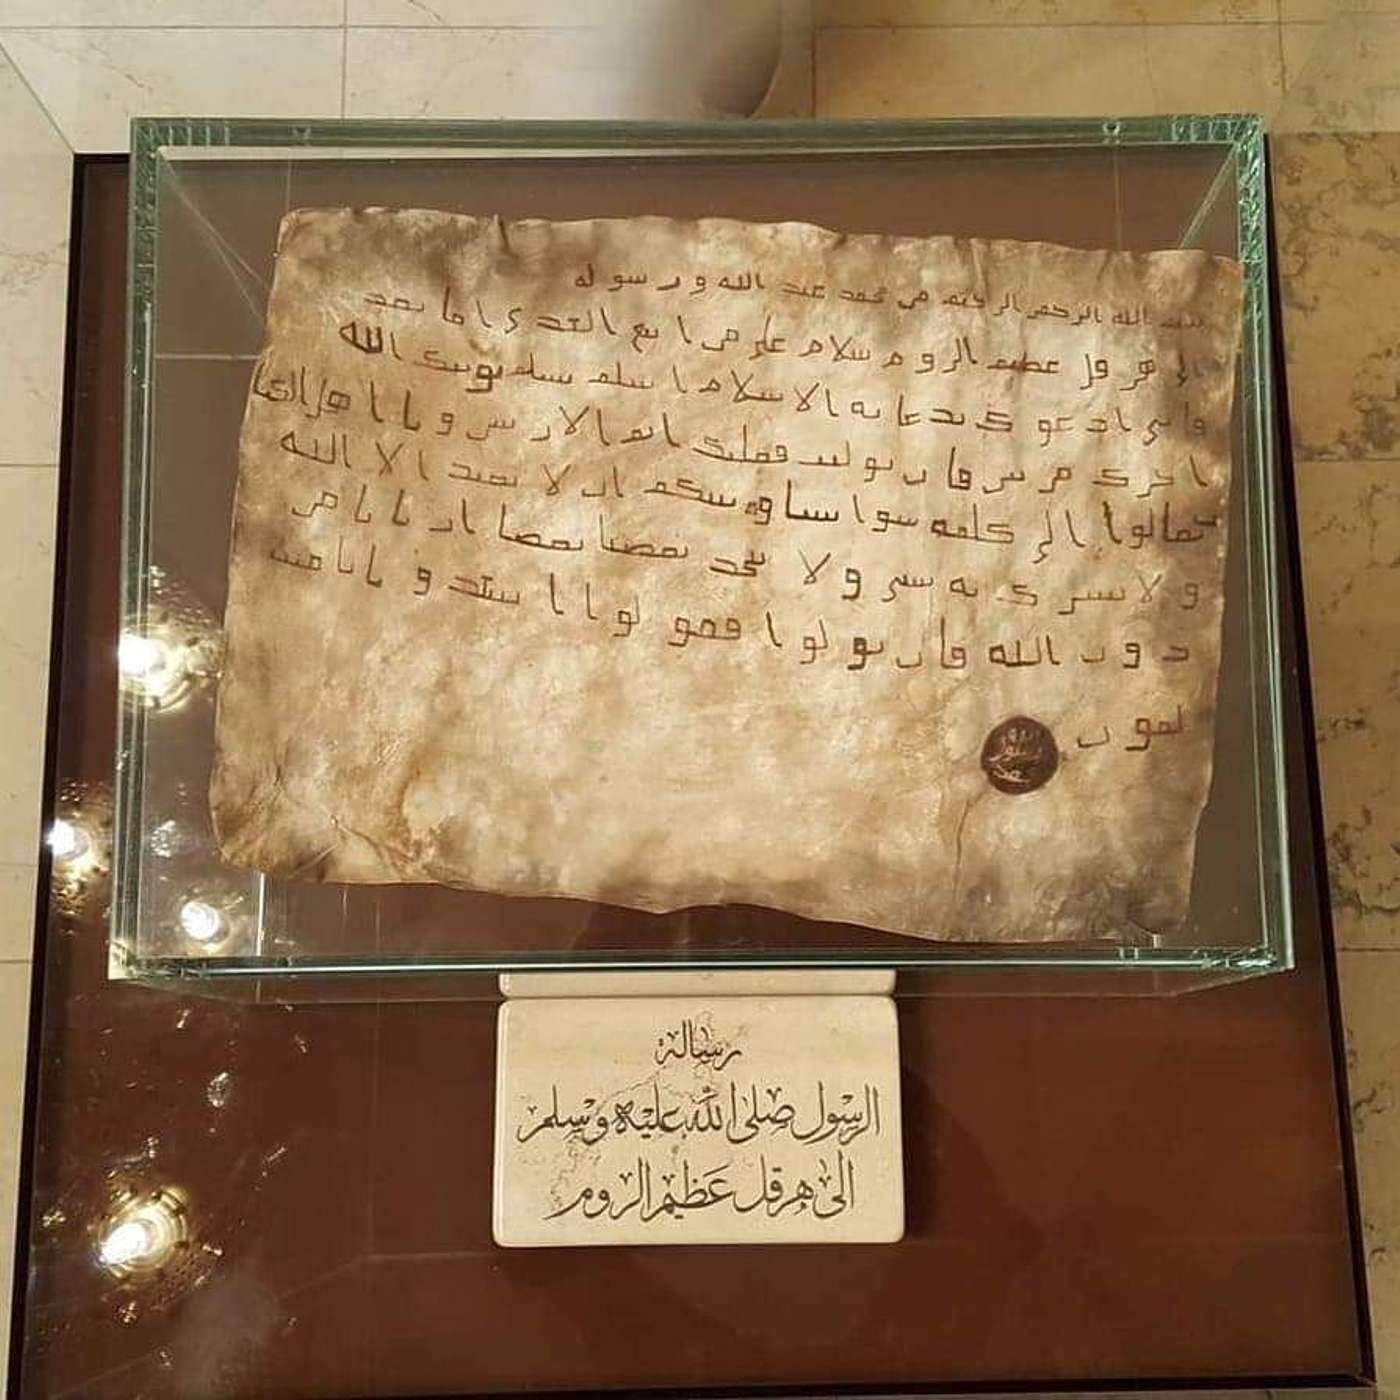 بسم الله الرحمن الرحيم من محمد عبد الله و رسوله
الى هرقل عظيم الروم سلام على من اتبع الهدى اما بعد
فاني ادعوك بدعاية الاسلام اسلم تسلم يوتك الله
اجرك مرتين فان توليت فعليك اثم الاريسين و يا اهل الكتا
تعالوا الى كلمة سوا بيننا و بينكم ان لا نعبد الا الله
و لا نشرك به شي و لا يتخذ بعضنا بعضا اربابا من
دون الله فان تولوا فقولوا اشهدو بانا
لمون
رسالة
الرسول صلى الله عليه وسلم
الى هرقل عظيم الروم